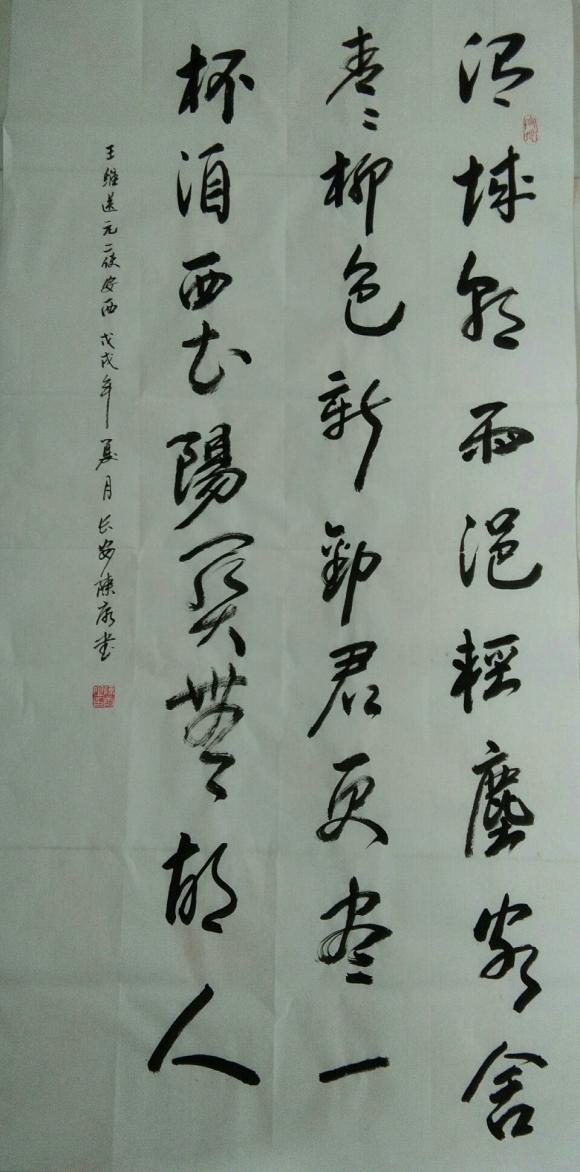 渭城朝雨浥輕塵客舍
青〻柳色新勸君更盡一
杯酒西出陽關無故人
王維送元二使安西 戊戌年夏月長安陳康書